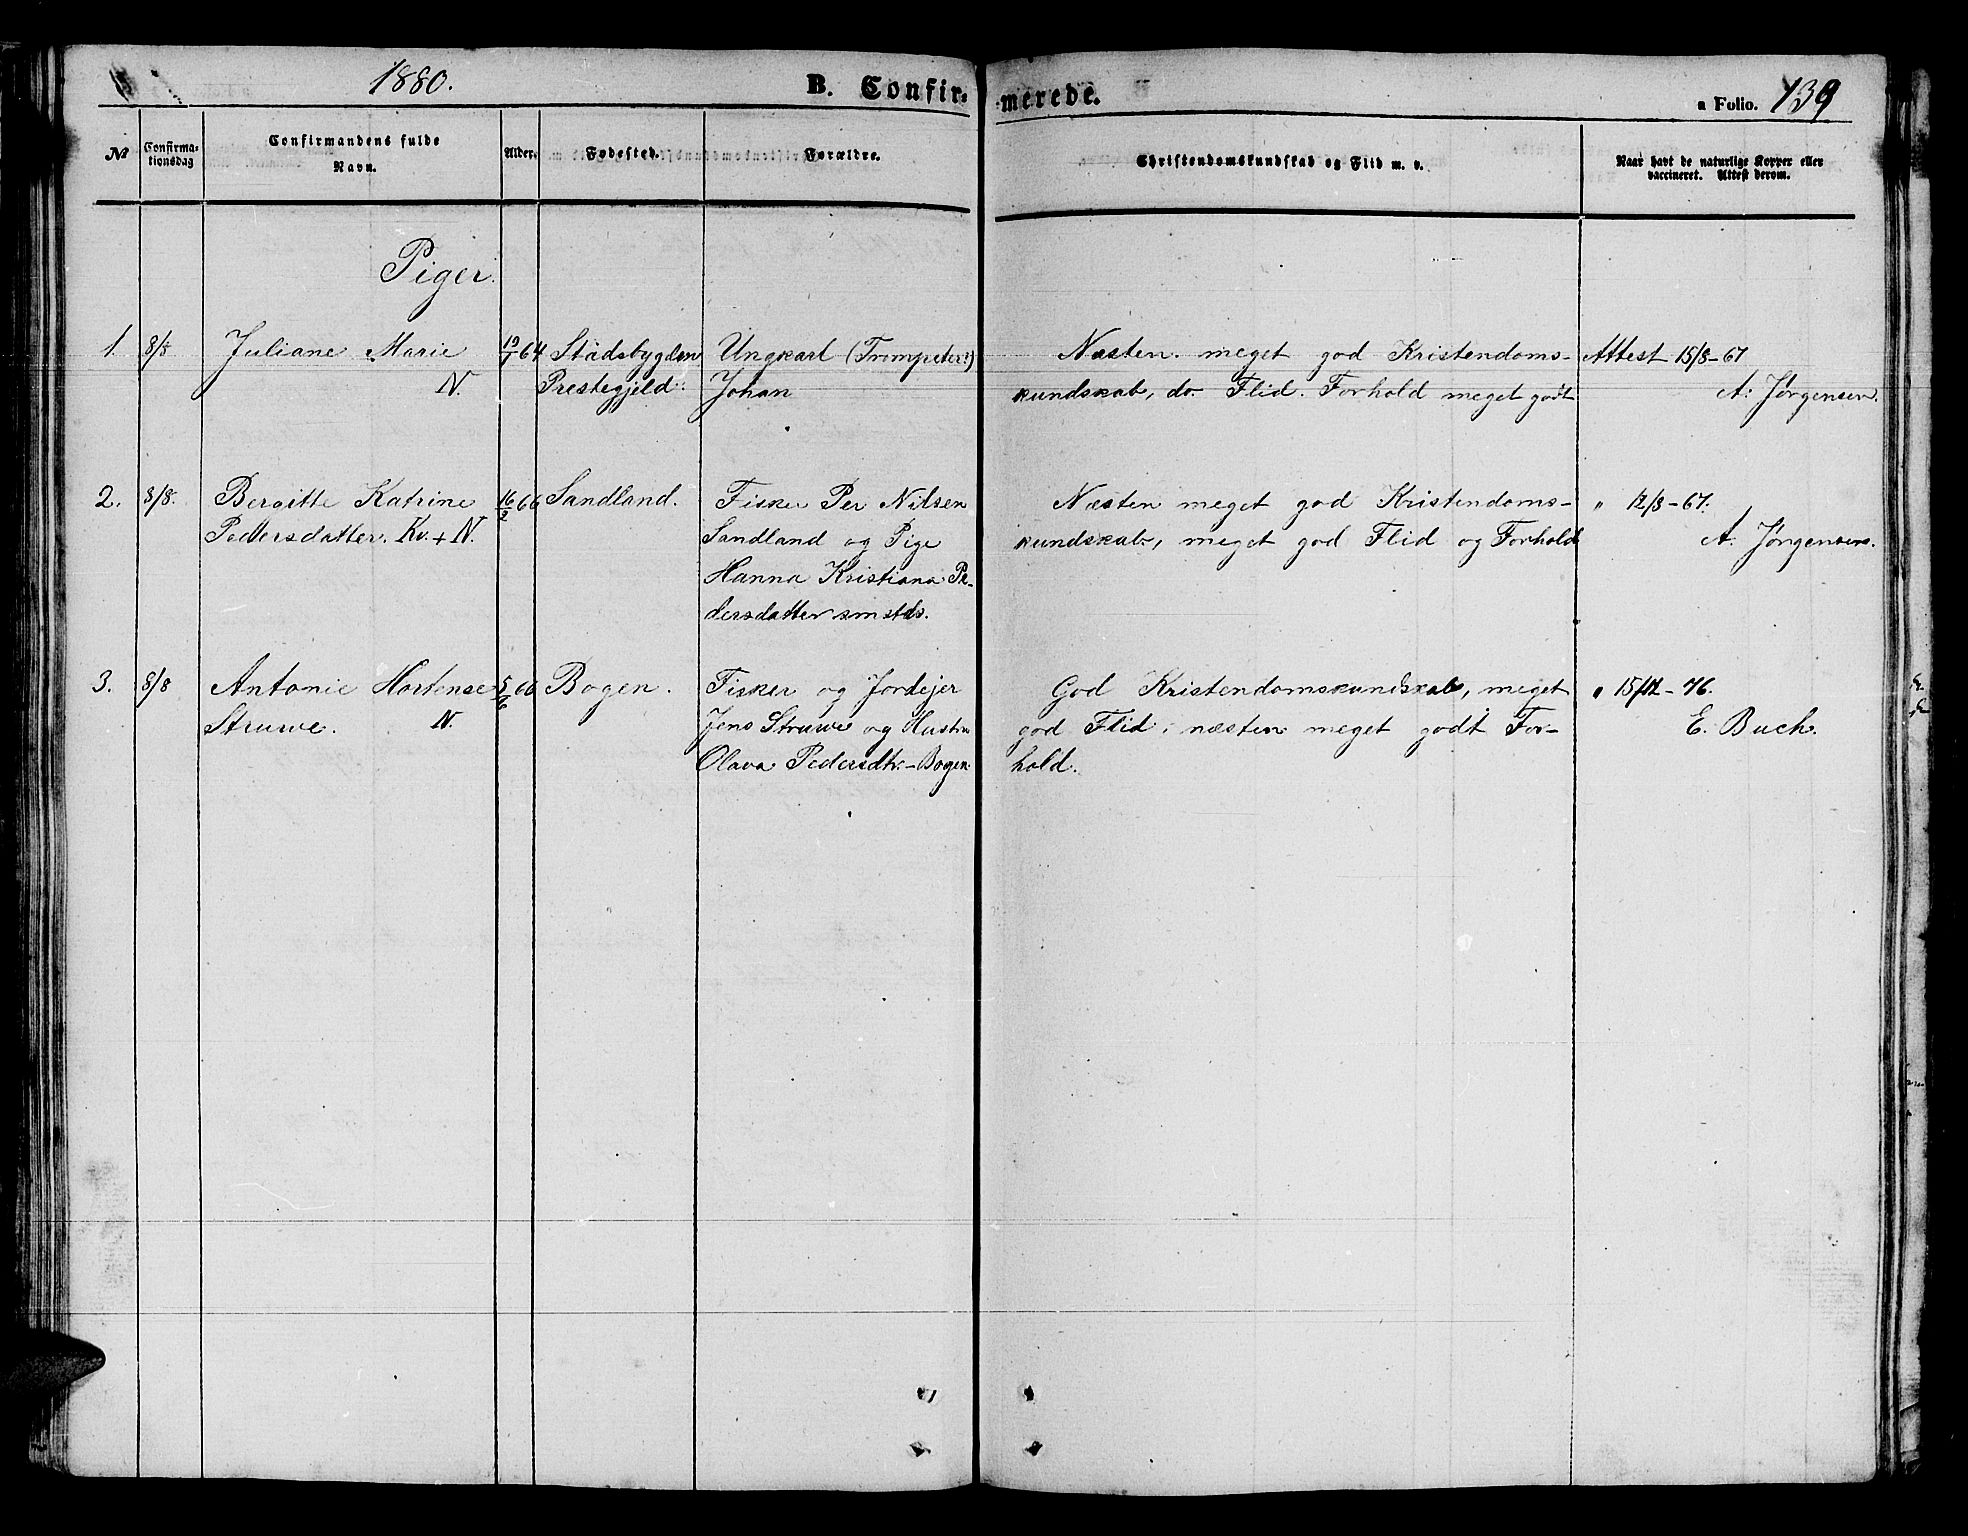 1880. B. Confirmerede. a Folio. 139
№ Confirmationsdag Confirmandens fulde Navn. Alder. Fødested. Forældre. Christendomskundskab og Flid m. v. Naar havt de naturlige Kopper eller vaccineret. Attest derom.
Piger.
1. 8/8 Juliane Marie 19/1 64 Stadsbygden Ungkarl (Trompeter?) Næsten meget god Kristendoms- Attest 15/8-67
N. Prestegjeld. Johan kundskab, do. Flid. Forhold meget godt A. Jørgensen.
2. 8/8. Bergitte Katrine 16/2 66 Sandland. Fisker Per Nilsen Næsten meget god Kristendoms- " 12/8-67.
Pedersdatter. Kv. + N. Sandland og Pige kundskab, meget god Flid og Forhold A. Jørgensen.
Hanna Kristiana Pe-
dersdatter smstds.
3. 8/8 Antonie Hortense 5/6 66 Bogen. Fisker og Jordejer God Kristendomskundskab, meget " 15/12-76.
Struwe. N. Jens Struwe og Hustru god Flid, næsten meget godt For- E. Buch.
Olava Pedersdtr.-Bogen. hold.